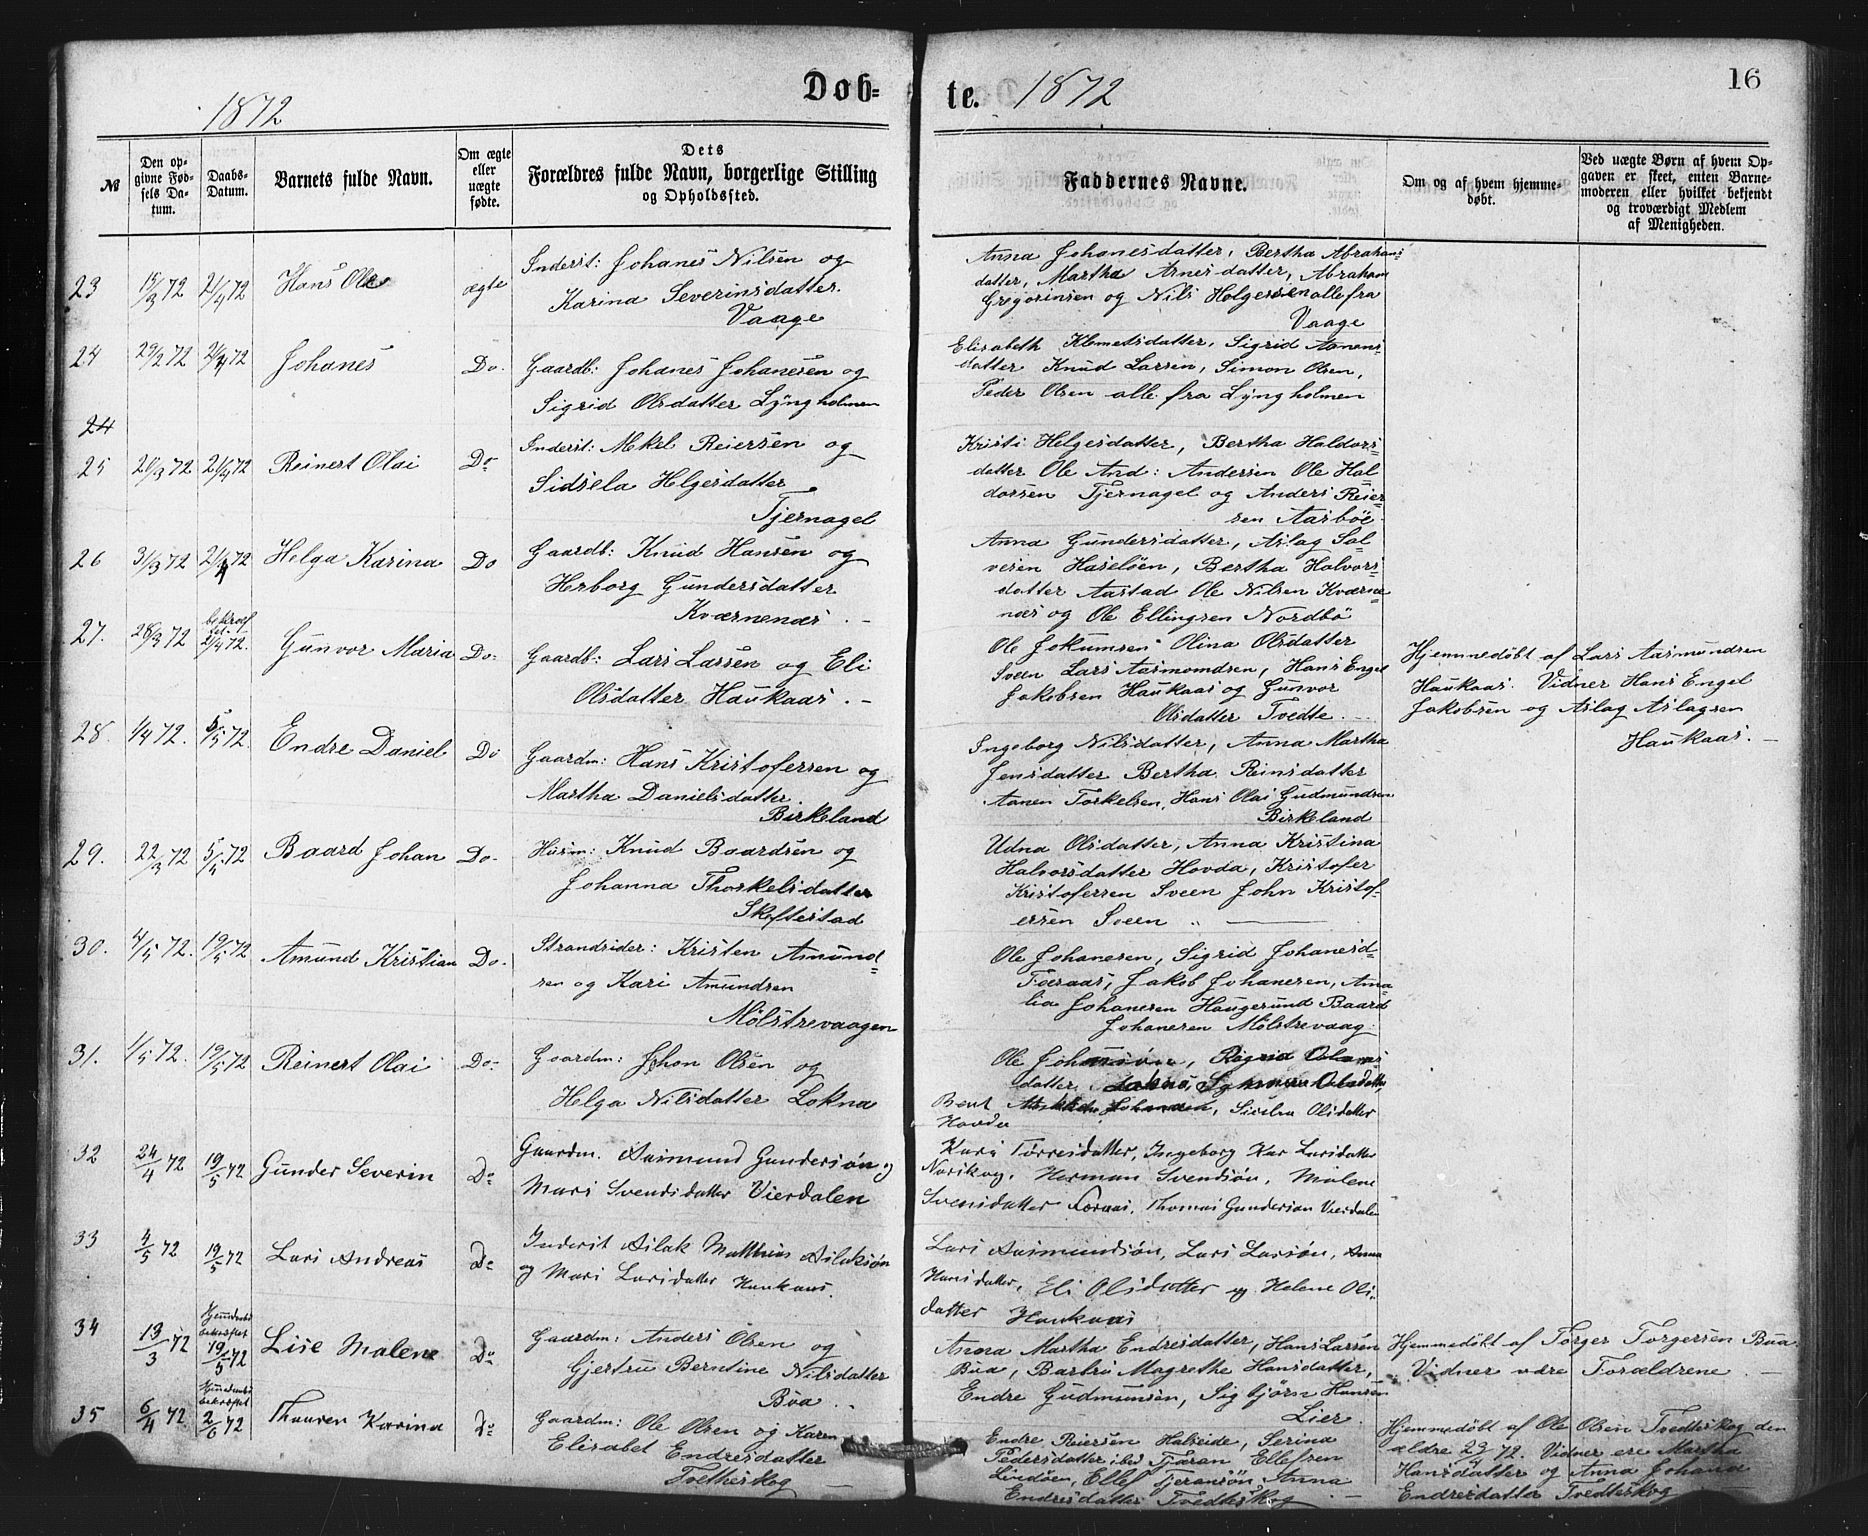 Døb-
te.
1872
1872
16
№
Den op-
givne Fød-
sels Da-
tum.
Daabs-
Datum.
Barnets fulde Navn.
Om ægte
eller
uægte
fødte.
Dets
Forældres fulde Navn, borgerlige Stilling
og Opholdssted.
Faddernes Navne.
Om og af hvem hjemme-
døbt.
Ved uægte Børn af hvem Op-
gaven er skeet, enten Barne-
moderen eller hvilket bekjendt
og troværdigt Medlem
af Menigheden.
23 15/3 72 21/4 72 Hans Ole ægte
Inderst: Johanes Nilsen og
Karina Severinsdatter.
Vaage
Anna Johanesdatter, Bertha Abrahams
datter, Martha Arnesdatter, Abraham
Gregoriusen og Nils Holgersen alle fra
Vaage
24 29/2 72 21/4 72 Johanes Do.
Gaardb: Johanes Johanesen og
Sigrid Olsdatter Lyngholmen
Elisabeth Klemetsdatter, Sigrid Amons-
datter Knud Larsen, Simon Olsen,
Peder Olsen alle fra Lyngholmen
24
25 20/3 72 21/4 72 Reinert Olai Do
Inderst: Mekel Reiersen og
Sidsela Helgesdatter
Tjernagel
Kristi Helgesdatter, Bertha Haldors-
datter Ole And: Andersen Ole Hal-
dorsen Tjernagel og Anders Reier-
sen Aasbøe
26 31/3 72 21/4 72 Helga Karina Do
Gaardb: Knud Hansen og
Herborg Gundersdatter
Kværnenæs . -
Anna Gundersdatter, Aslag Sal-
vesen Hasseløen, Bertha Halvors-
datter Aastad Ole Nilsen Kværne-
næs og Ole Ellingsen Nordbö
27. 28/3 72 bekræf
tet. 21/4 72. Gunvor Maria Do-
Gaardb: Lars Larsen og Eli
Olsdatter Haukaas . -
Ole Jokumsen Olina Olsdatter
Sveen Lars Aasmomdsen, Hans Engel
Jakobsen Haukaas og Gunvor
Olsdatter Tvedte
Hjemmedøbt af Lars Aasmundsen
Haukaas. Vidner Hans Engel
Jakobsen og Aslag Aslagsen
Haukaas. -
28. 1/4 72. 5/5 72 Endre Daniel Do
Gaardm: Hans Kristofersen og
Martha Danielsdatter.
Birkeland
Ingeborg Nilsdatter, Anna Martha
Jensdatter Bertha Reinsdatter
Aanen Torkelsen, Hans Olai Gudmundsen
Birkeland
29. 22/3 72 5/5 72 Baard Johan Do-
Husm: Knud Baardsen og
Johanna Thorkelsdatter
Skeftestad
Udna Olsdatter, Anna Kristina
Halvorsdatter Hovda, Kristofer
Kristofersen Sveen John Kristof-
ersen Sveen
30. 4/5 72. 19/5 72 Amund Kristian Do-
Strandsider: Kristen Amund-
sen og Kari Amundsen
Mølstrevaagen
Ole Johanesen, Sigrid Johanesd-
Foraas, Jakob Johanesen, Ama-
lia Johanesen Haugesund Baard
Johanesen Mølstrevaag.
31. 1/5 72. 19/5 72 Reinert Olai Do-
Gaardm: John Olsen og
Helga Nilsdatter Lokna
Ole
datter
Bent Sisilia Olsdatter
Hovda
32 24/4 72 19/5 72 Gunder Severin Do
Gaardm. Aasmund Gundersøn og
Mari Svendsdatter Vierdalen
Kari Tørresdatter, Ingeborg Kar Larsdatter
Norskog, Herman Svendsøn, Malene
Svensdatter Foraas, Thomas Gundersøn Vierdalen
33 4/5 72 19/5 72 Lars Andreas Do
Inderst Aslak Matthias Aslaksøn
og Mari Larsdatter Haukaas.
Lars Aasmundsøn, Lars Larsøn, Anna
Hansdatter, Eli Olsdatter og Helene Ols-
datter Haukaas
34 13/3 72 Hjemmedøbt
bekræftet
19/5 72 Lise Malene Do
Gaardm: Anders Olsen og
Gjertru Berntine Nilsdatter
Bua . .
Anna Martha Endresdatter, Hans Larsen
Bua, Barbro Magrethe Hansdatter,
Endre Gudmunsen, Sigbjørn Hansen
Lier.
Hjemmedøbt af Torger Torgersen Bua.
Vidner være Forældrene . -
35 6/4 72 Hjemmedøbt
bekræftet
2/6 72 Thauren Karina Do
Gaardm: Ole Olsen og Karen
Elisabet Endresdatter
Tvethskog -
Endre Reiersen Halseide, Serina
Pedersdatter ibd Tjøran Ellefsen
Lindøen, Ellef Tjeransøn, Anna
Endresdatter Tvedteskog . -
Hjemmedøbt af Ole Olsen Tvedteskog den
ældre 72. Vidner ere Martha
Hansdatter og Anna Johana
Endresdatter Tvedteskog